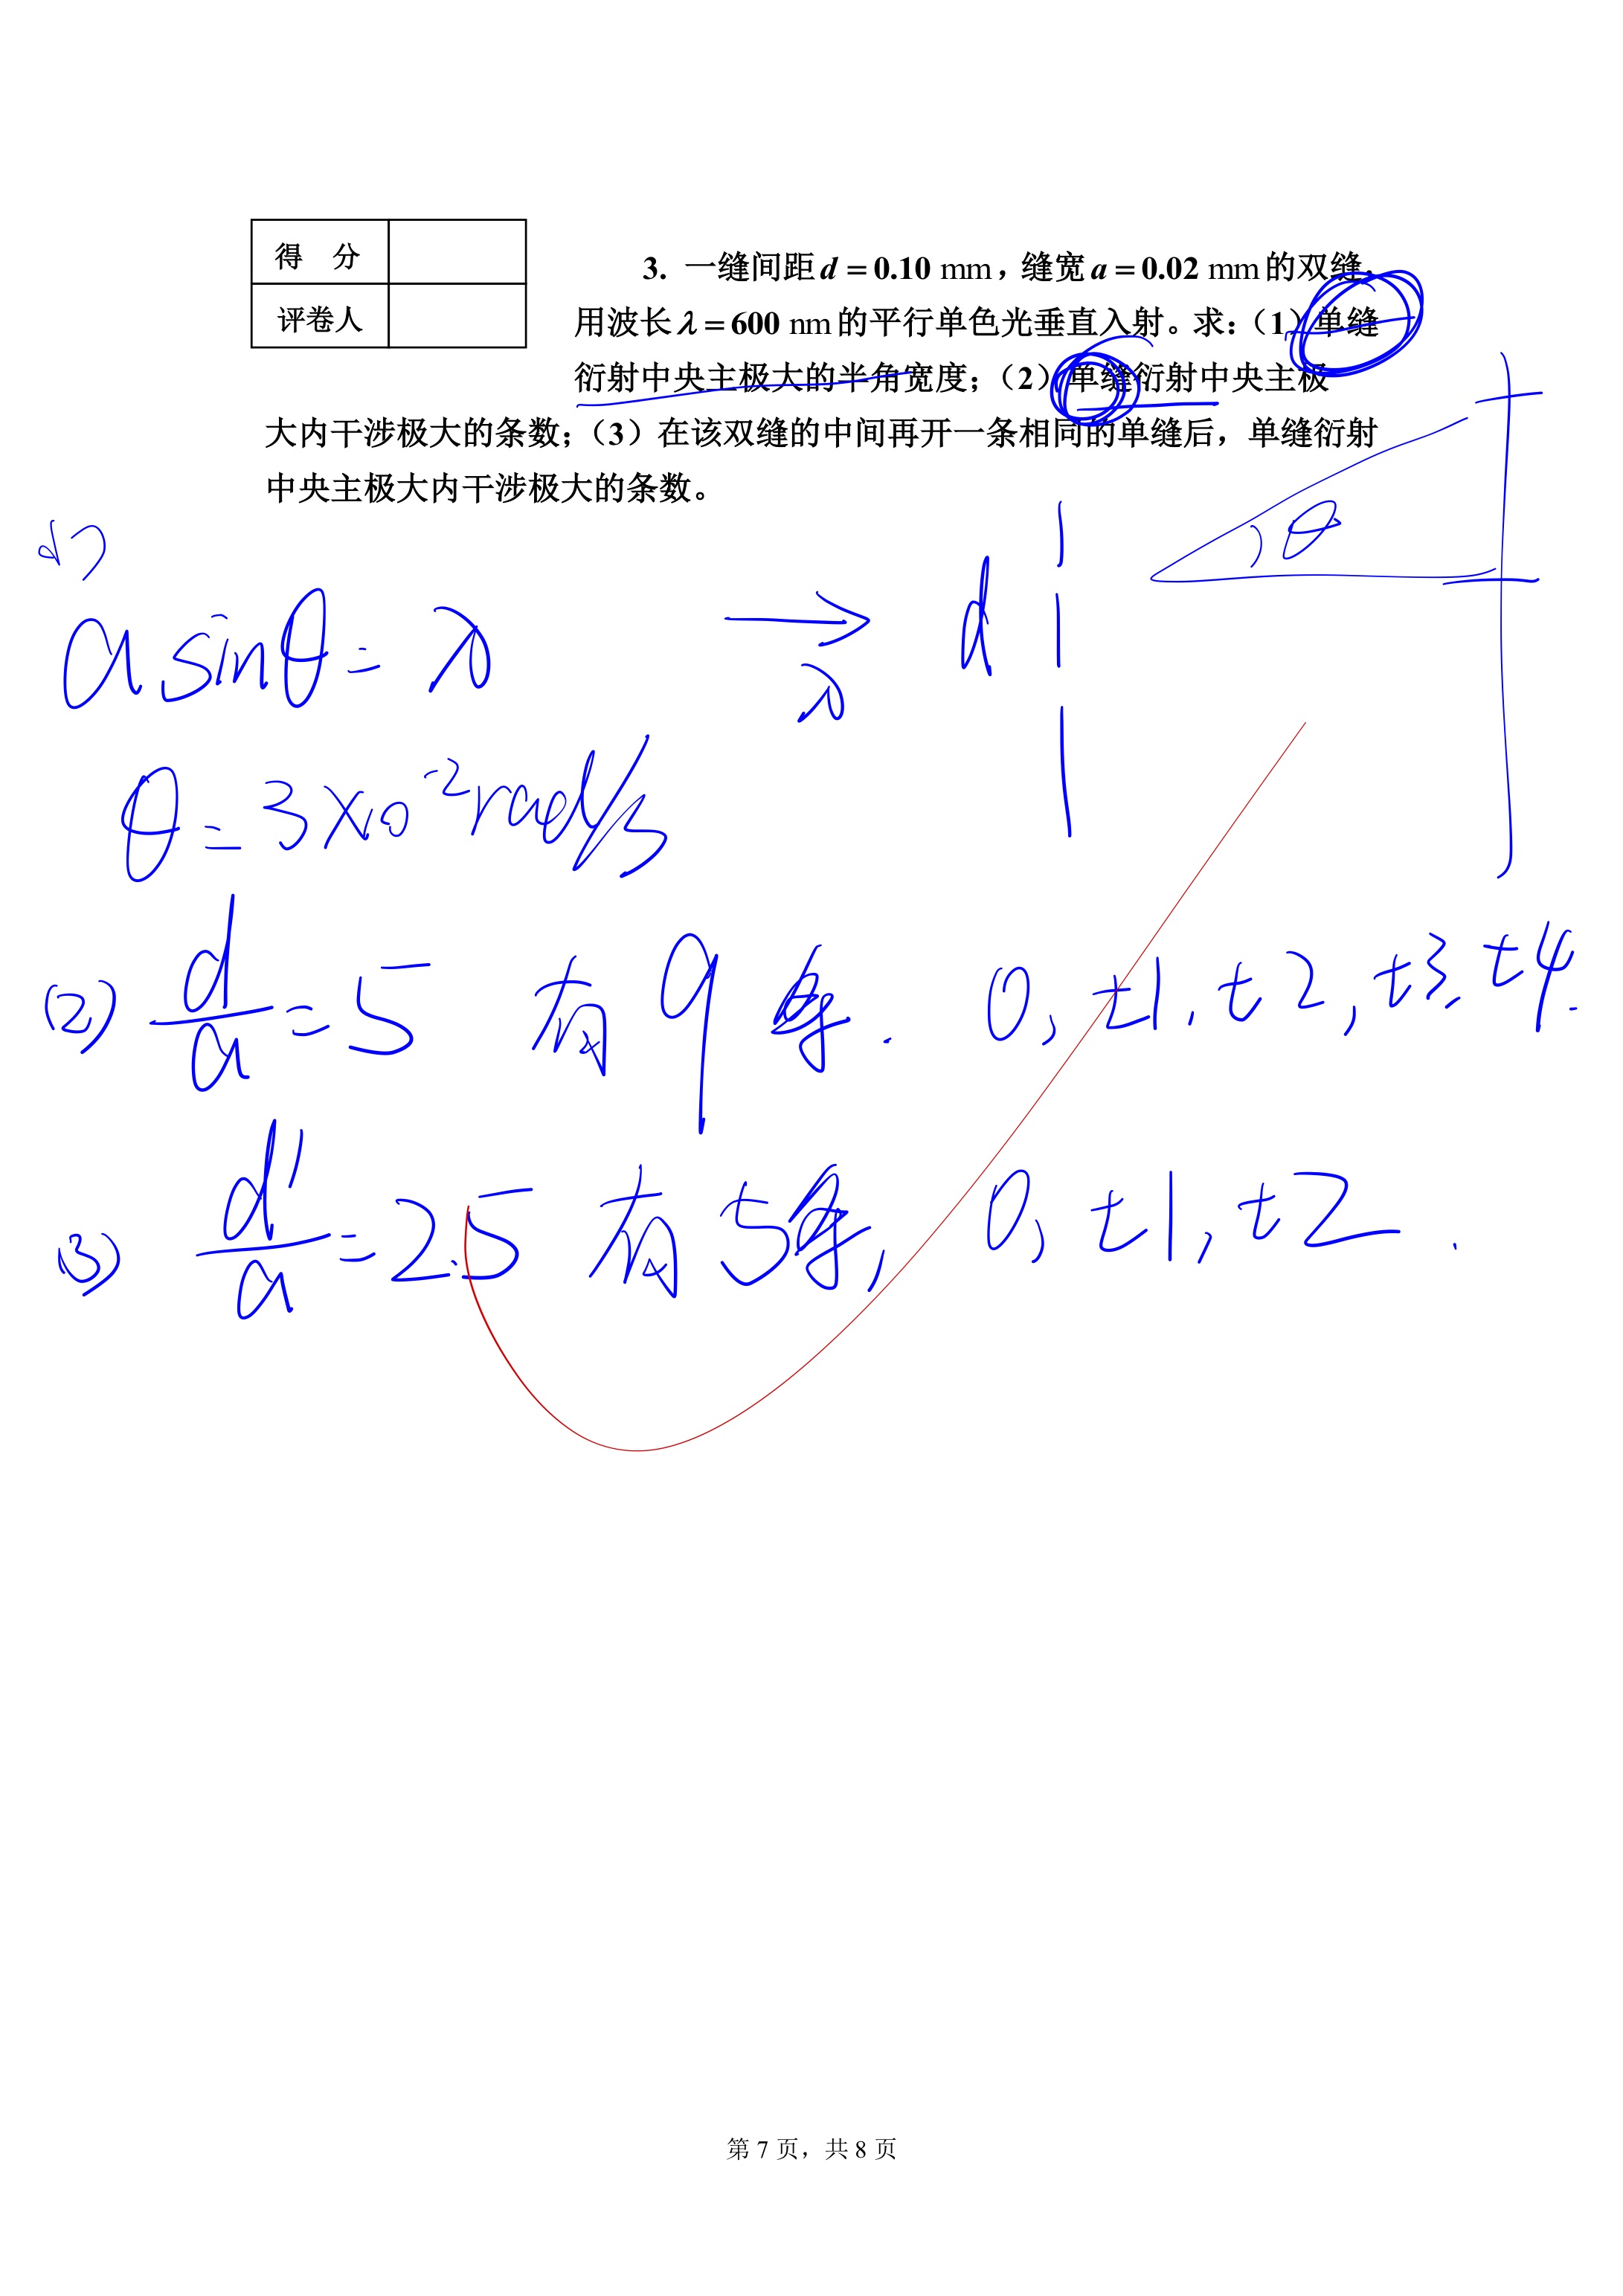 得 分
评卷人
3. 一缝间距 d = 0.10 mm，缝宽 a = 0.02 mm 的双缝，
用波长 λ = 600 nm 的平行单色光垂直入射。求：（1）单缝
衍射中央主极大的半角宽度；（2）单缝衍射中央主极
大内干涉极大的条数；（3）在该双缝的中间再开一条相同的单缝后，单缝衍射
中央主极大内干涉极大的条数。
a sinθ = λ
λ
d
θ
θ = 3×10⁻² rad/s
(2) d/a = 5 有9条. 0, ±1, ±2, ±3, ±4.
(3) d'/a = 2.5 有5条, 0, ±1, ±2.
第 7 页，共 8 页